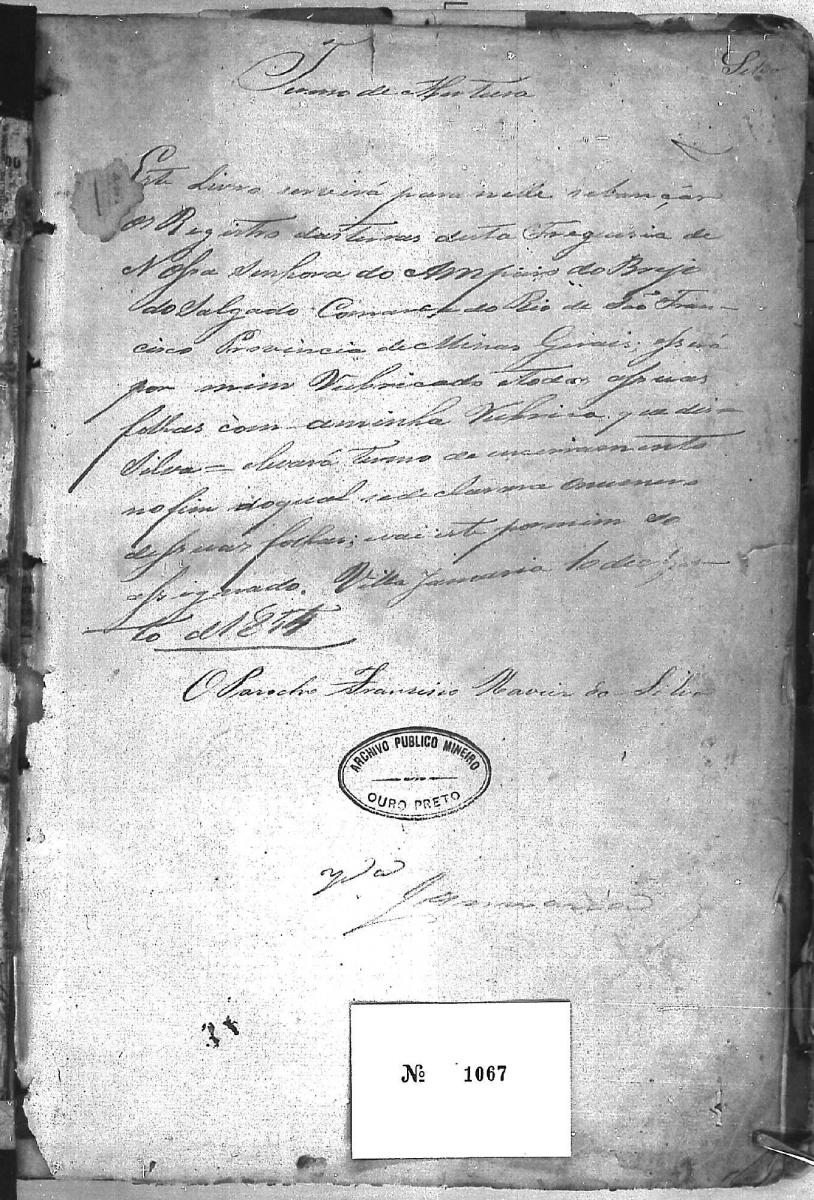 Silva
Termo de Abertura
Este Livro servirá para nelle se lançár
os Registro das terras desta Freguesia de
Nossa Senhora do Amparo do Brejo
do Salgado Comarca do Rio de São Fran-
cisco Provincia de Minas Gerais; está
por mim Rubricado e todas as suas
folhas com a minha Rubrica que diz =
Silva = e levará termo de encerramento
no fim do qual se declarará o numero
de suas folhas; vai este por mim
assignado. Villa Januaria 1o de Agos-
to de 1855
O Parocho Francisco Xavier da Silva
ARCHIVO PUBLICO MINEIRO
OURO PRETO
Januaria
Nº 1067